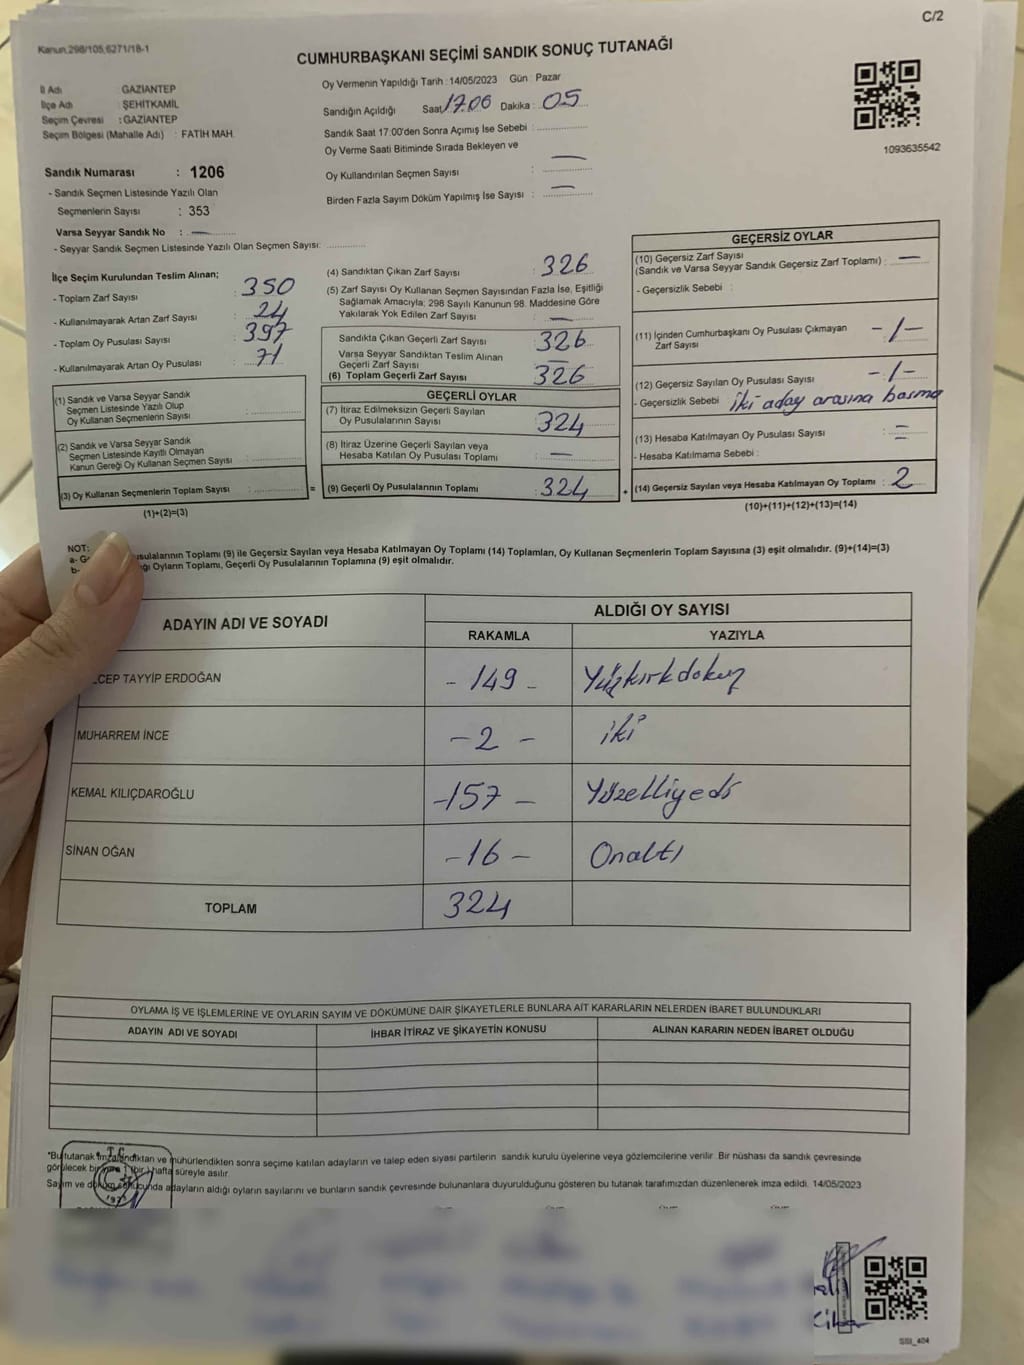 C/2
Kanun.298/105,6271/18-1
CUMHURBAŞKANI SEÇİMİ SANDIK SONUÇ TUTANAĞI
İl Adı : GAZİANTEP
İlçe Adı : ŞEHİTKAMİL
Seçim Çevresi : GAZİANTEP
Seçim Bölgesi (Mahalle Adı) : FATİH MAH.
Oy Vermenin Yapıldığı Tarih : 14/05/2023 Gün : Pazar
Sandığın Açıldığı Saat 17.06 Dakika : 05
Sandık Saat 17:00'den Sonra Açımış İse Sebebi :
Oy Verme Saati Bitiminde Sırada Bekleyen ve
Oy Kullandırılan Seçmen Sayısı : —
Birden Fazla Sayım Döküm Yapılmış İse Sayısı : —
1093635542
Sandık Numarası : 1206
- Sandık Seçmen Listesinde Yazılı Olan
Seçmenlerin Sayısı : 353
Varsa Seyyar Sandık No : —
- Seyyar Sandık Seçmen Listesinde Yazılı Olan Seçmen Sayısı:
İlçe Seçim Kurulundan Teslim Alınan;
- Toplam Zarf Sayısı : 350
- Kullanılmayarak Artan Zarf Sayısı : 24
- Toplam Oy Pusulası Sayısı : 397
- Kullanılmayarak Artan Oy Pusulası : 71
(1) Sandık ve Varsa Seyyar Sandık
Seçmen Listesinde Yazılı Olup
Oy Kullanan Seçmenlerin Sayısı :
(2) Sandık ve Varsa Seyyar Sandık
Seçmen Listesinde Kayıtlı Olmayan
Kanun Gereği Oy Kullanan Seçmen Sayısı :
(3) Oy Kullanan Seçmenlerin Toplam Sayısı :
(1)+(2)=(3)
(4) Sandıktan Çıkan Zarf Sayısı : 326
(5) Zarf Sayısı Oy Kullanan Seçmen Sayısından Fazla İse, Eşitliği
Sağlamak Amacıyla; 298 Sayılı Kanunun 98. Maddesine Göre
Yakılarak Yok Edilen Zarf Sayısı : —
Sandıkta Çıkan Geçerli Zarf Sayısı : 326
Varsa Seyyar Sandıktan Teslim Alınan
Geçerli Zarf Sayısı : —
(6) Toplam Geçerli Zarf Sayısı : 326
GEÇERLİ OYLAR
(7) İtiraz Edilmeksizin Geçerli Sayılan
Oy Pusulalarının Sayısı : 324
(8) İtiraz Üzerine Geçerli Sayılan veya
Hesaba Katılan Oy Pusulası Toplamı : —
= (9) Geçerli Oy Pusulalarının Toplamı : 324
GEÇERSİZ OYLAR
(10) Geçersiz Zarf Sayısı
(Sandık ve Varsa Seyyar Sandık Geçersiz Zarf Toplamı) : —
- Geçersizlik Sebebi :
(11) İçinden Cumhurbaşkanı Oy Pusulası Çıkmayan
Zarf Sayısı : -1-
(12) Geçersiz Sayılan Oy Pusulası Sayısı : -1-
- Geçersizlik Sebebi : iki aday arasına basma
(13) Hesaba Katılmayan Oy Pusulası Sayısı : =
- Hesaba Katılmama Sebebi :
+ (14) Geçersiz Sayılan veya Hesaba Katılmayan Oy Toplamı : 2
(10)+(11)+(12)+(13)=(14)
NOT:
a- pusulalarının Toplamı (9) ile Geçersiz Sayılan veya Hesaba Katılmayan Oy Toplamı (14) Toplamları, Oy Kullanan Seçmenlerin Toplam Sayısına (3) eşit olmalıdır. (9)+(14)=(3)
b- Oyların Toplamı, Geçerli Oy Pusulalarının Toplamına (9) eşit olmalıdır.
ADAYIN ADI VE SOYADI
ALDIĞI OY SAYISI
RAKAMLA YAZIYLA
CEP TAYYİP ERDOĞAN - 149 - Yüzkırkdokuz
MUHARREM İNCE - 2 - iki
KEMAL KILIÇDAROĞLU - 157 - Yüzelliyedi
SİNAN OĞAN - 16 - Onaltı
TOPLAM 324
OYLAMA İŞ VE İŞLEMLERİNE VE OYLARIN SAYIM VE DÖKÜMÜNE DAİR ŞİKAYETLERLE BUNLARA AİT KARARLARIN NELERDEN İBARET BULUNDUKLARI
ADAYIN ADI VE SOYADI İHBAR İTİRAZ VE ŞİKAYETİN KONUSU ALINAN KARARIN NEDEN İBARET OLDUĞU
*Bu tutanak imzalandıktan ve mühürlendikten sonra seçime katılan adayların ve talep eden siyasi partilerin sandık kurulu üyelerine veya gözlemcilerine verilir. Bir nüshası da sandık çevresinde
görülecek bir yere 1 (bir) hafta süreyle asılır.
Sayım ve döküm sonucunda adayların aldığı oyların sayılarını ve bunların sandık çevresinde bulunanlara duyurulduğunu gösteren bu tutanak tarafımızdan düzenlenerek imza edildi. 14/05/2023
T.C.
SSI_404